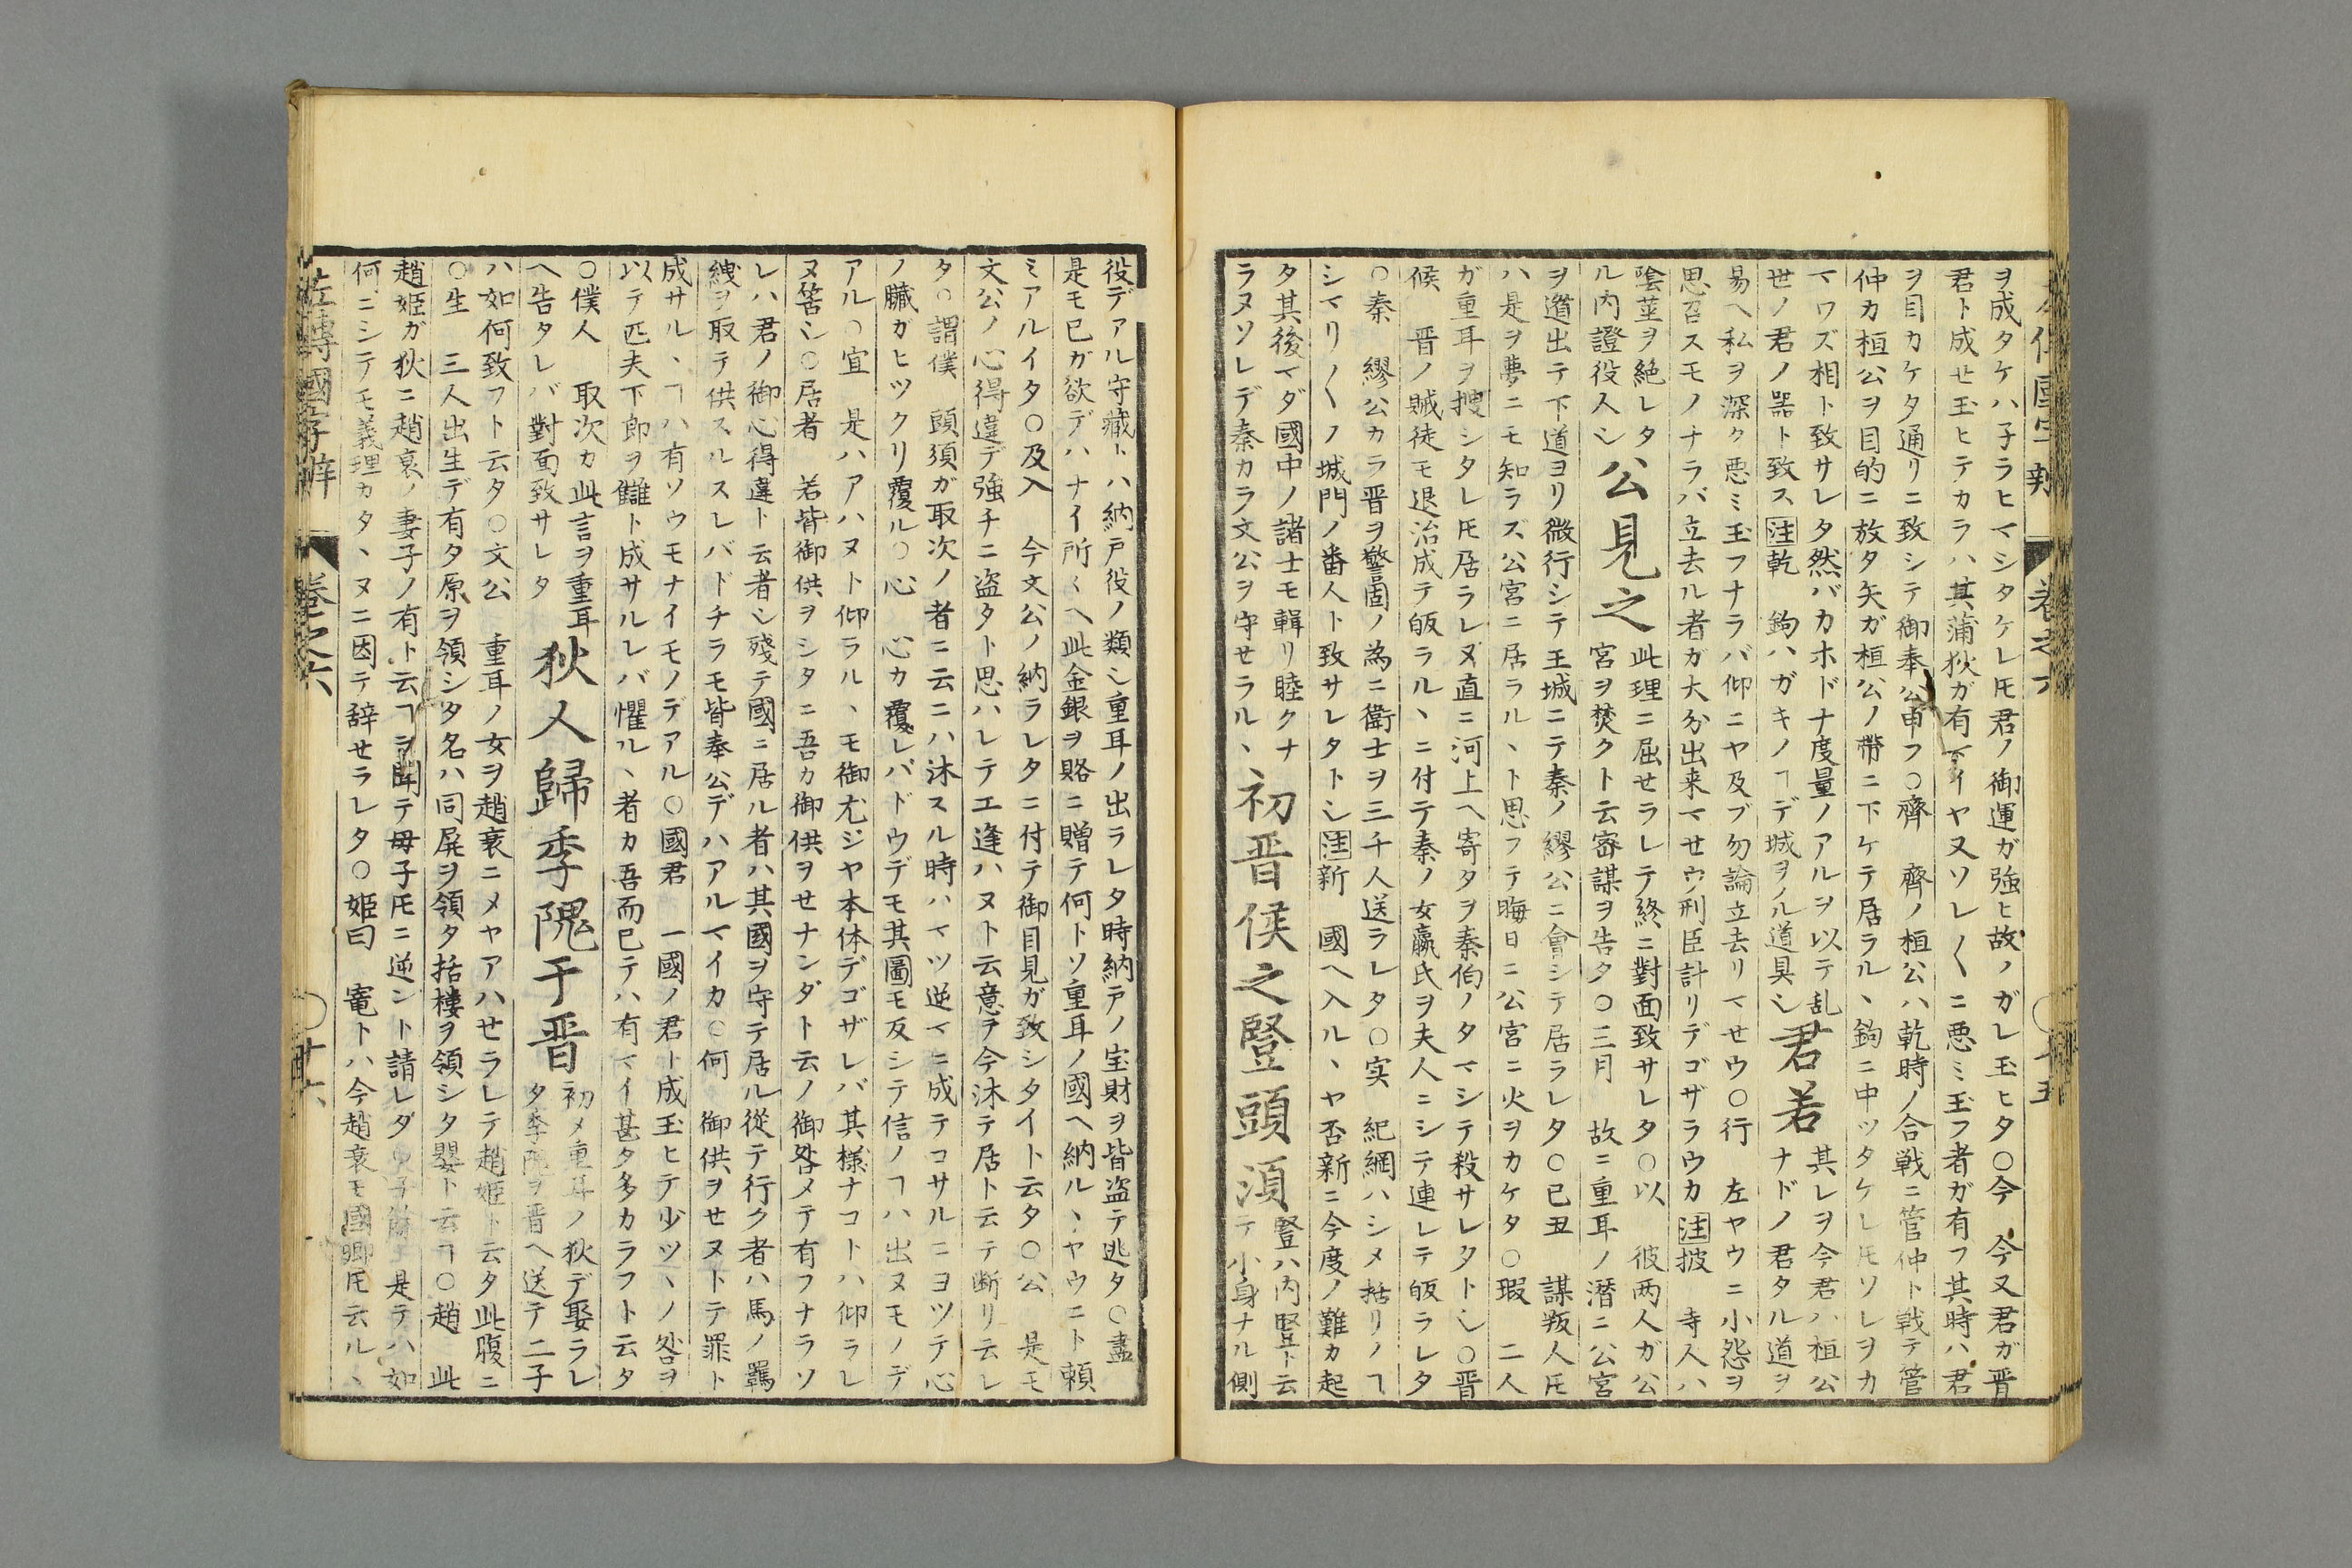 ヲ成タケハ子ラヒマシタケレ𪜈君ノ御運ガ強ヒ故ノガレ玉ヒタ○今　今又君ガ晋
君ト成セ玉ヒテカラハ其蒲狄ガ有イヤ又ソレ〱ニ悪ミ玉フ者ガ有フ其時ハ君
ヲ目カケタ通リニ致シテ御奉公申フ○齊　齊ノ桓公ハ乾時ノ合戦ニ管仲ト戦テ管
仲カ桓公ヲ目的ニ放タ矢ガ桓公ノ帶ニ下ケテ居ラル丶鉤ニ中ツタケレ𪜈ソレヲカ
マワズ相ト致サレタ然バカホドナ度量ノアルヲ以テ乱
世ノ君ノ噐ト致ス注乾　鉤ハガキノヿデ城ヲノル道具乄
君若
其レヲ今君ハ桓公
ナドノ君タル道ヲ
易ヘ私ヲ深ク悪ミ玉フナラバ仰ニヤ及ブ勿論立去リマセウ○行　左ヤウニ小怨ヲ
思召スモノナラバ立去ル者ガ大分出来マセウ刑臣計リデゴザラウカ注披　寺人ハ
陰莖ヲ絶レタ
ル内證役人乄
公見之
此理ニ屈セラレテ終ニ對面致サレタ○以　彼两人ガ公
宮ヲ焚クト云宻謀ヲ告タ○三月　故ニ重耳ノ潜ニ公宮
ヲ遁出テ下道ヨリ微行シテ王城ニテ秦ノ繆公ニ會シテ居ラレタ○己丑　謀叛人𪜈
ハ是ヲ夢ニモ知ラズ公宮ニ居ラル丶ト思フテ晦日ニ公宮ニ火ヲカケタ○瑕　二人
ガ重耳ヲ捜シタレ𪜈居ラレヌ直ニ河上ヘ寄タヲ秦伯ノタマシテ殺サレタト乄○晋
候　晋ノ賊徒モ退治成テ皈ラル丶ニ付テ秦ノ女嬴氏ヲ夫人ニシテ連レテ皈ラレタ
○秦　繆公カラ晋ヲ警固ノ為ニ衛士ヲ三千人送ラレタ○実　紀綱ハシメ括リノヿ
シマリ〱ノ城門ノ番人ト致サレタト乄注新　國ヘ入ル丶ヤ否新ニ今度ノ難カ起
タ其後マダ國中ノ諸士モ輯リ睦クナ
ラヌソレデ秦カラ文公ヲ守セラル丶
初晋侯之豎頭湏
豎ハ内豎ト云
テ小身ナル側
役デアル守藏ハ納戸役ノ類乄重耳ノ出ラレタ時納戸ノ宝財ヲ皆盗テ逃タ○盡
是モ已ガ欲デハナイ所〱ヘ此金銀ヲ賂ニ贈テ何トソ重耳ノ國ヘ納ル丶ヤウニト頼
ミアルイタ○及入　今文公ノ納ラレタニ付テ御目見ガ致シタイト云タ○公　是モ
文公ノ心得違テ強チニ盗タト思ハレテエ逢ハヌト云意ヲ今沐テ居ト云テ断リ云レ
タ○謂僕　頭須ガ取次ノ者ニ云ニハ沐スル時ハマツ逆マニ成テコサルニヨツテ心
ノ臓ガヒツクリ覆ル○心　心カ覆レバドウデモ其圖モ反シテ信ノヿハ出ヌモノデ
アル○宜　是ハアハヌト仰ラル丶モ御尤ジヤ本体デゴザレバ其様ナコトハ仰ラレ
ヌ筈乄○居者　若皆御供ヲシタニ吾カ御供ヲセナンダト云ノ御咎メテ有フナラソ
レハ君ノ御心得違ト云者乄残テ國ニ居ル者ハ其國ヲ守テ居ル從テ行ク者ハ馬ノ羈
絏ヲ取テ供スルスレバドチラモ皆奉公デハアルマイカ○何　御供ヲセヌトテ罪ト
成サル丶ヿハ有ソウモナイモノデアル○國君　一國ノ君ト成玉ヒテ少ツ丶ノ咎ヲ
以テ匹夫下郎ヲ讎ト成サルレバ懼ル丶者カ吾而已テハ有マイ甚タ多カラフト云タ
○僕人　取次カ此言ヲ重耳
ヘ告タレバ對面致サレタ
狄人歸季隗于晋
初メ重耳ノ狄デ娶ラレ
タ季隗ヲ晋ヘ送テ二子
ハ如何致フト云タ○文公　重耳ノ女ヲ趙衰ニメヤアハセラレテ趙姫ト云タ此腹ニ
○生　三人出生デ有タ原ヲ領シタ名ハ同屏ヲ領タ括樓ヲ領シタ嬰ト云ヿ○趙　此
趙姫ガ狄ニ趙衰ノ妻子ノ有ト云ヿヲ聞テ母子𪜈ニ逆ント請レタ　是テハ如
何ニシテモ義理カタ丶ヌニ因テ辞セラレタ○姫曰　竃トハ今趙衰モ國卿𪜈云ル丶
左傳國字辨　巻之六　○廿六